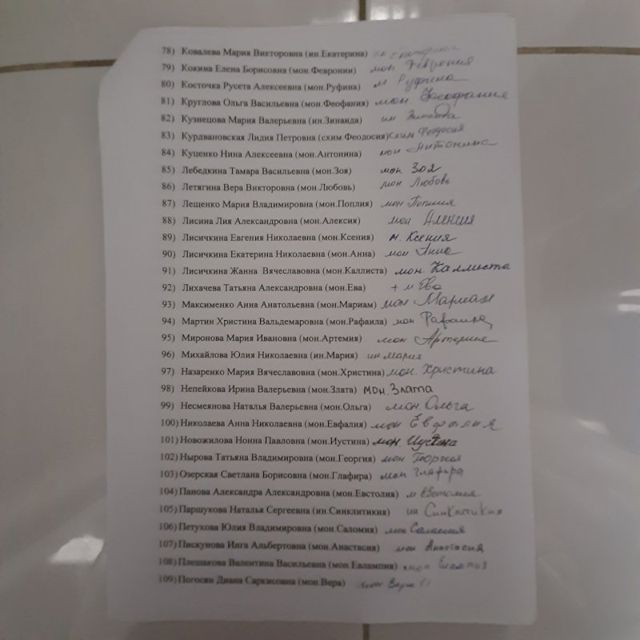 78) Ковалева Мария Викторовна (ин.Екатерина)
79) Кокина Елена Борисовна (мон.Феврония) мон Феврония
80) Косточка Русета Алексеевна (мон.Руфина) м Руфина
81) Круглова Ольга Васильевна (мон.Феофания) мон Феофания
82) Кузнецова Мария Валерьевна (ин.Зинаида) ин Зинаида
83) Курдвановская Лидия Петровна (схим Феодосия) схим Феодосия
84) Куценко Нина Алексеевна (мон.Антонина) мон Антонина
85) Лебедкина Тамара Васильевна (мон.Зоя) мон Зоя
86) Летягина Вера Викторовна (мон.Любовь) мон Любовь
87) Лещенко Мария Владимировна (мон.Поплия) мон Поплия
88) Лисина Лия Александровна (мон.Алексия) мон Алексия
89) Лисичкина Евгения Николаевна (мон.Ксения) м. Ксения
90) Лисичкина Екатерина Николаевна (мон.Анна) мон Анна
91) Лисичкина Жанна Вячеславовна (мон.Каллиста) мон. Каллиста
92) Лихачева Татьяна Александровна (мон.Ева) + м Ева
93) Максименко Анна Анатольевна (мон.Мариам) мон Мариам
94) Мартин Христина Вальдемаровна (мон.Рафаила) мон Рафаила
95) Миронова Мария Ивановна (мон.Артемия) мон Артемия
96) Михайлова Юлия Николаевна (ин.Мария) ин мария
97) Назаренко Мария Вячеславовна (мон.Христина) мон. Христина
98) Непейкова Ирина Валерьевна (мон.Злата) мон. Злата
99) Несмеянова Наталья Валерьевна (мон.Ольга) мон. Ольга
100) Николаева Анна Николаевна (мон.Евфалия) мон Евфалия
101) Новожилова Нонна Павловна (мон.Иустина) мон Иустина
102) Нырова Татьяна Владимировна (мон.Георгия) мон Георгия
103) Озерская Светлана Борисовна (мон.Глафира) мон Глафира
104) Панова Александра Александровна (мон.Евстолия) м Евстолия
105) Паршукова Наталья Сергеевна (ин.Синклитикия) ин Синклитикия
106) Петухова Юлия Владимировна (мон.Саломия) мон Саломия
107) Пискунова Инга Альбертовна (мон.Анастасия) мон Анастасия
108) Плешакова Валентина Васильевна (мон.Евлампия)
109) Погосян Диана Саркисовна (мон.Вера) мон Вера